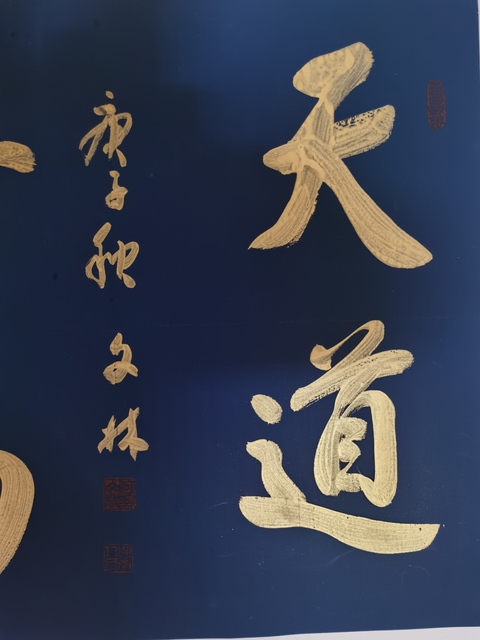 天道
庚子秋 文林